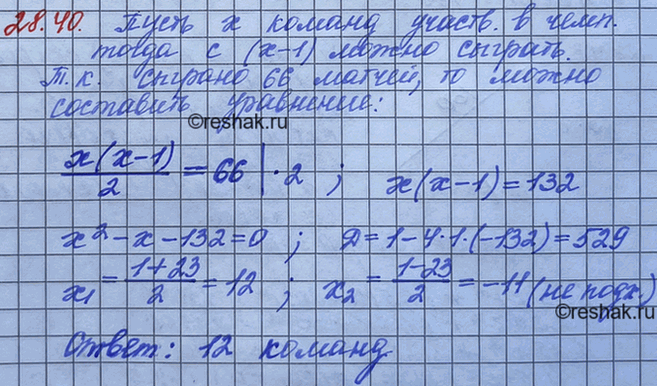 28.40. Пусть x команд участв. в чемп.
тогда с (x-1) можно сыграть.
Т.к. сыграно 66 матчей, то можно
составить уравнение:
©reshak.ru
x(x-1)/2 = 66 | ·2 ; x(x-1)=132
x²-x-132=0 ; D=1-4·1·(-132)=529
x₁ = (1+23)/2 = 12 ; x₂ = (1-23)/2 = -11 (не подх.)
©reshak.ru
Ответ: 12 команд